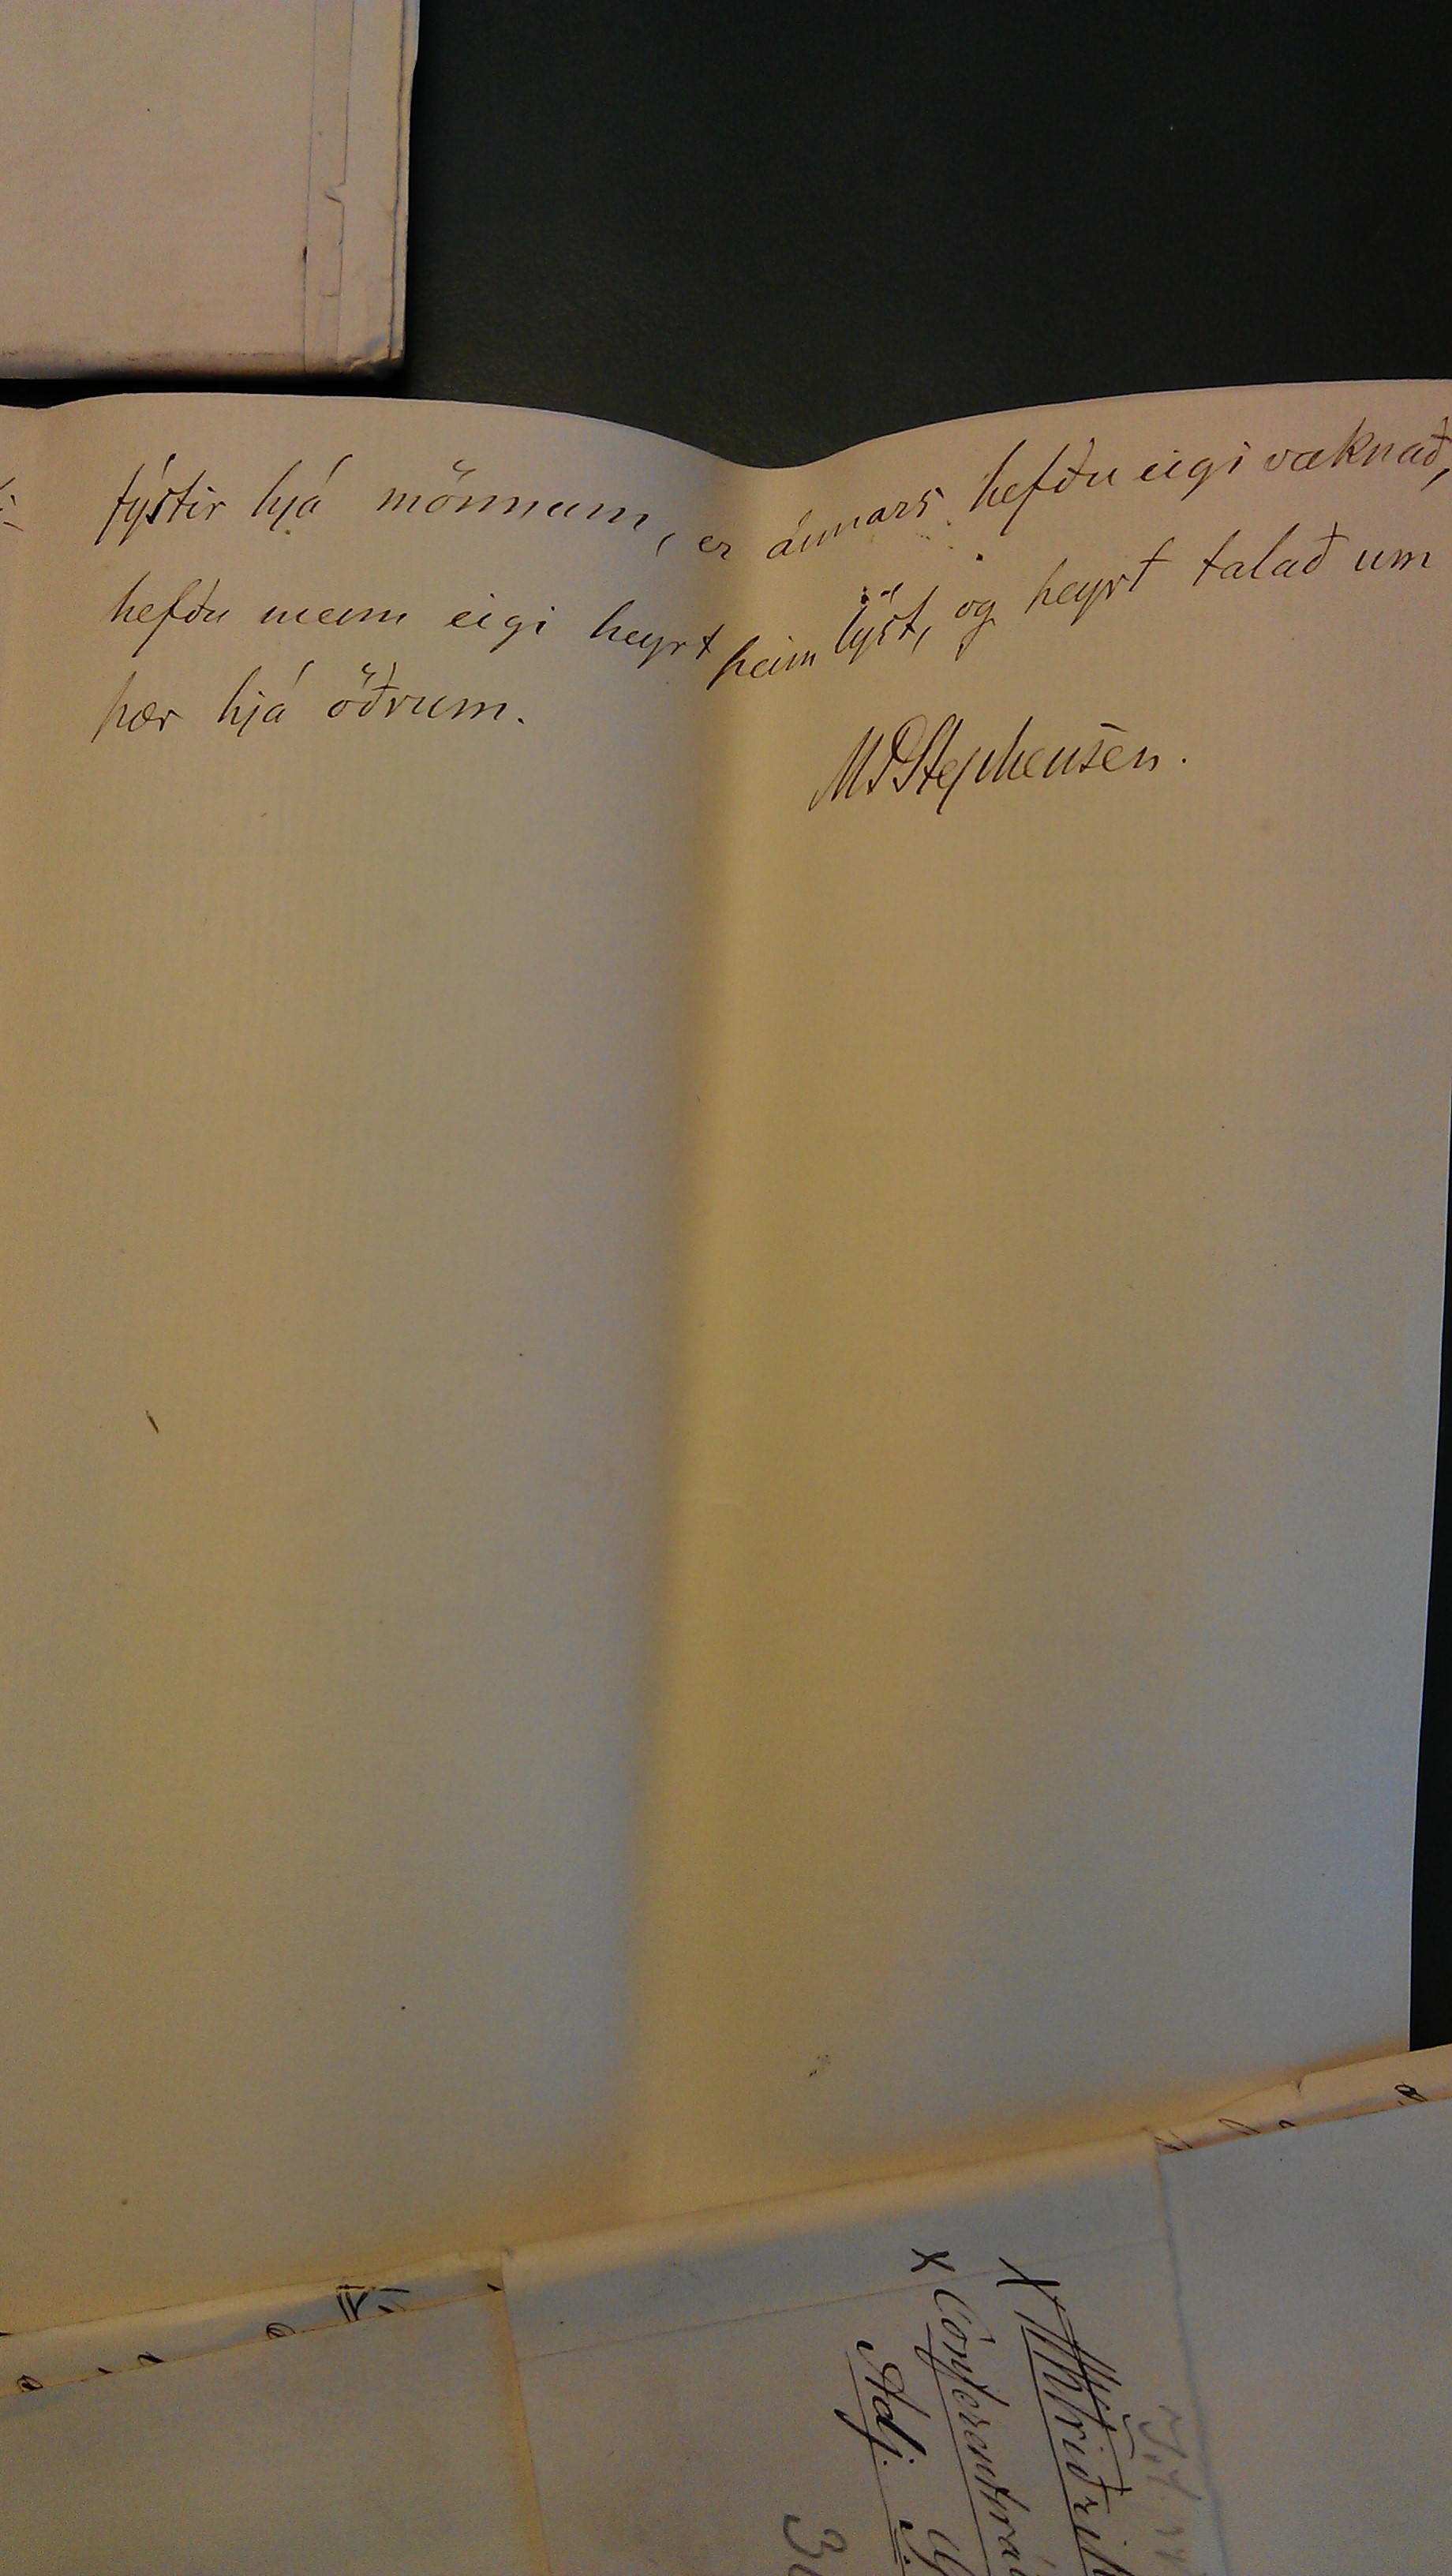 fýstir hjá mönnum, er annars hefðu eigi vaknað,
hefðu menn eigi heyrt þeim lýst, og heyrt talað um
þær hjá öðrum.
MStephensen.
Conferentsrá
Adj.